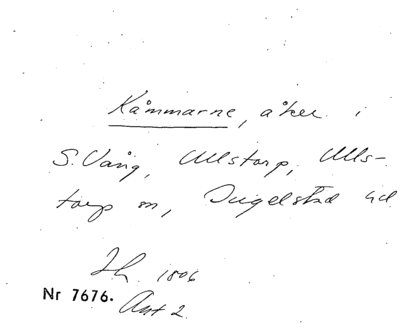 Kåmmarne, åker i
S. Vång, Ullstorp, Ulls-
torp sn, Ingelstad hd
Jh. 1806
Nr 7676. Akt 2